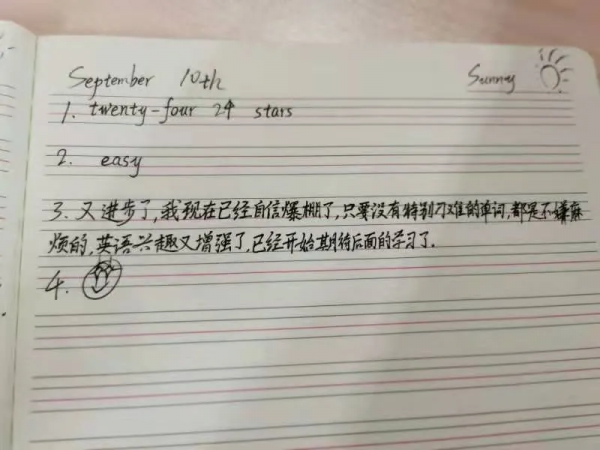 September 10th Sunny
1. twenty-four 24 stars
2. easy
3. 又进步了,我现在已经自信爆棚了,只要没有特别刁难的单词,都是不嫌麻
烦的,英语兴趣又增强了,已经开始期待后面的学习了.
4.